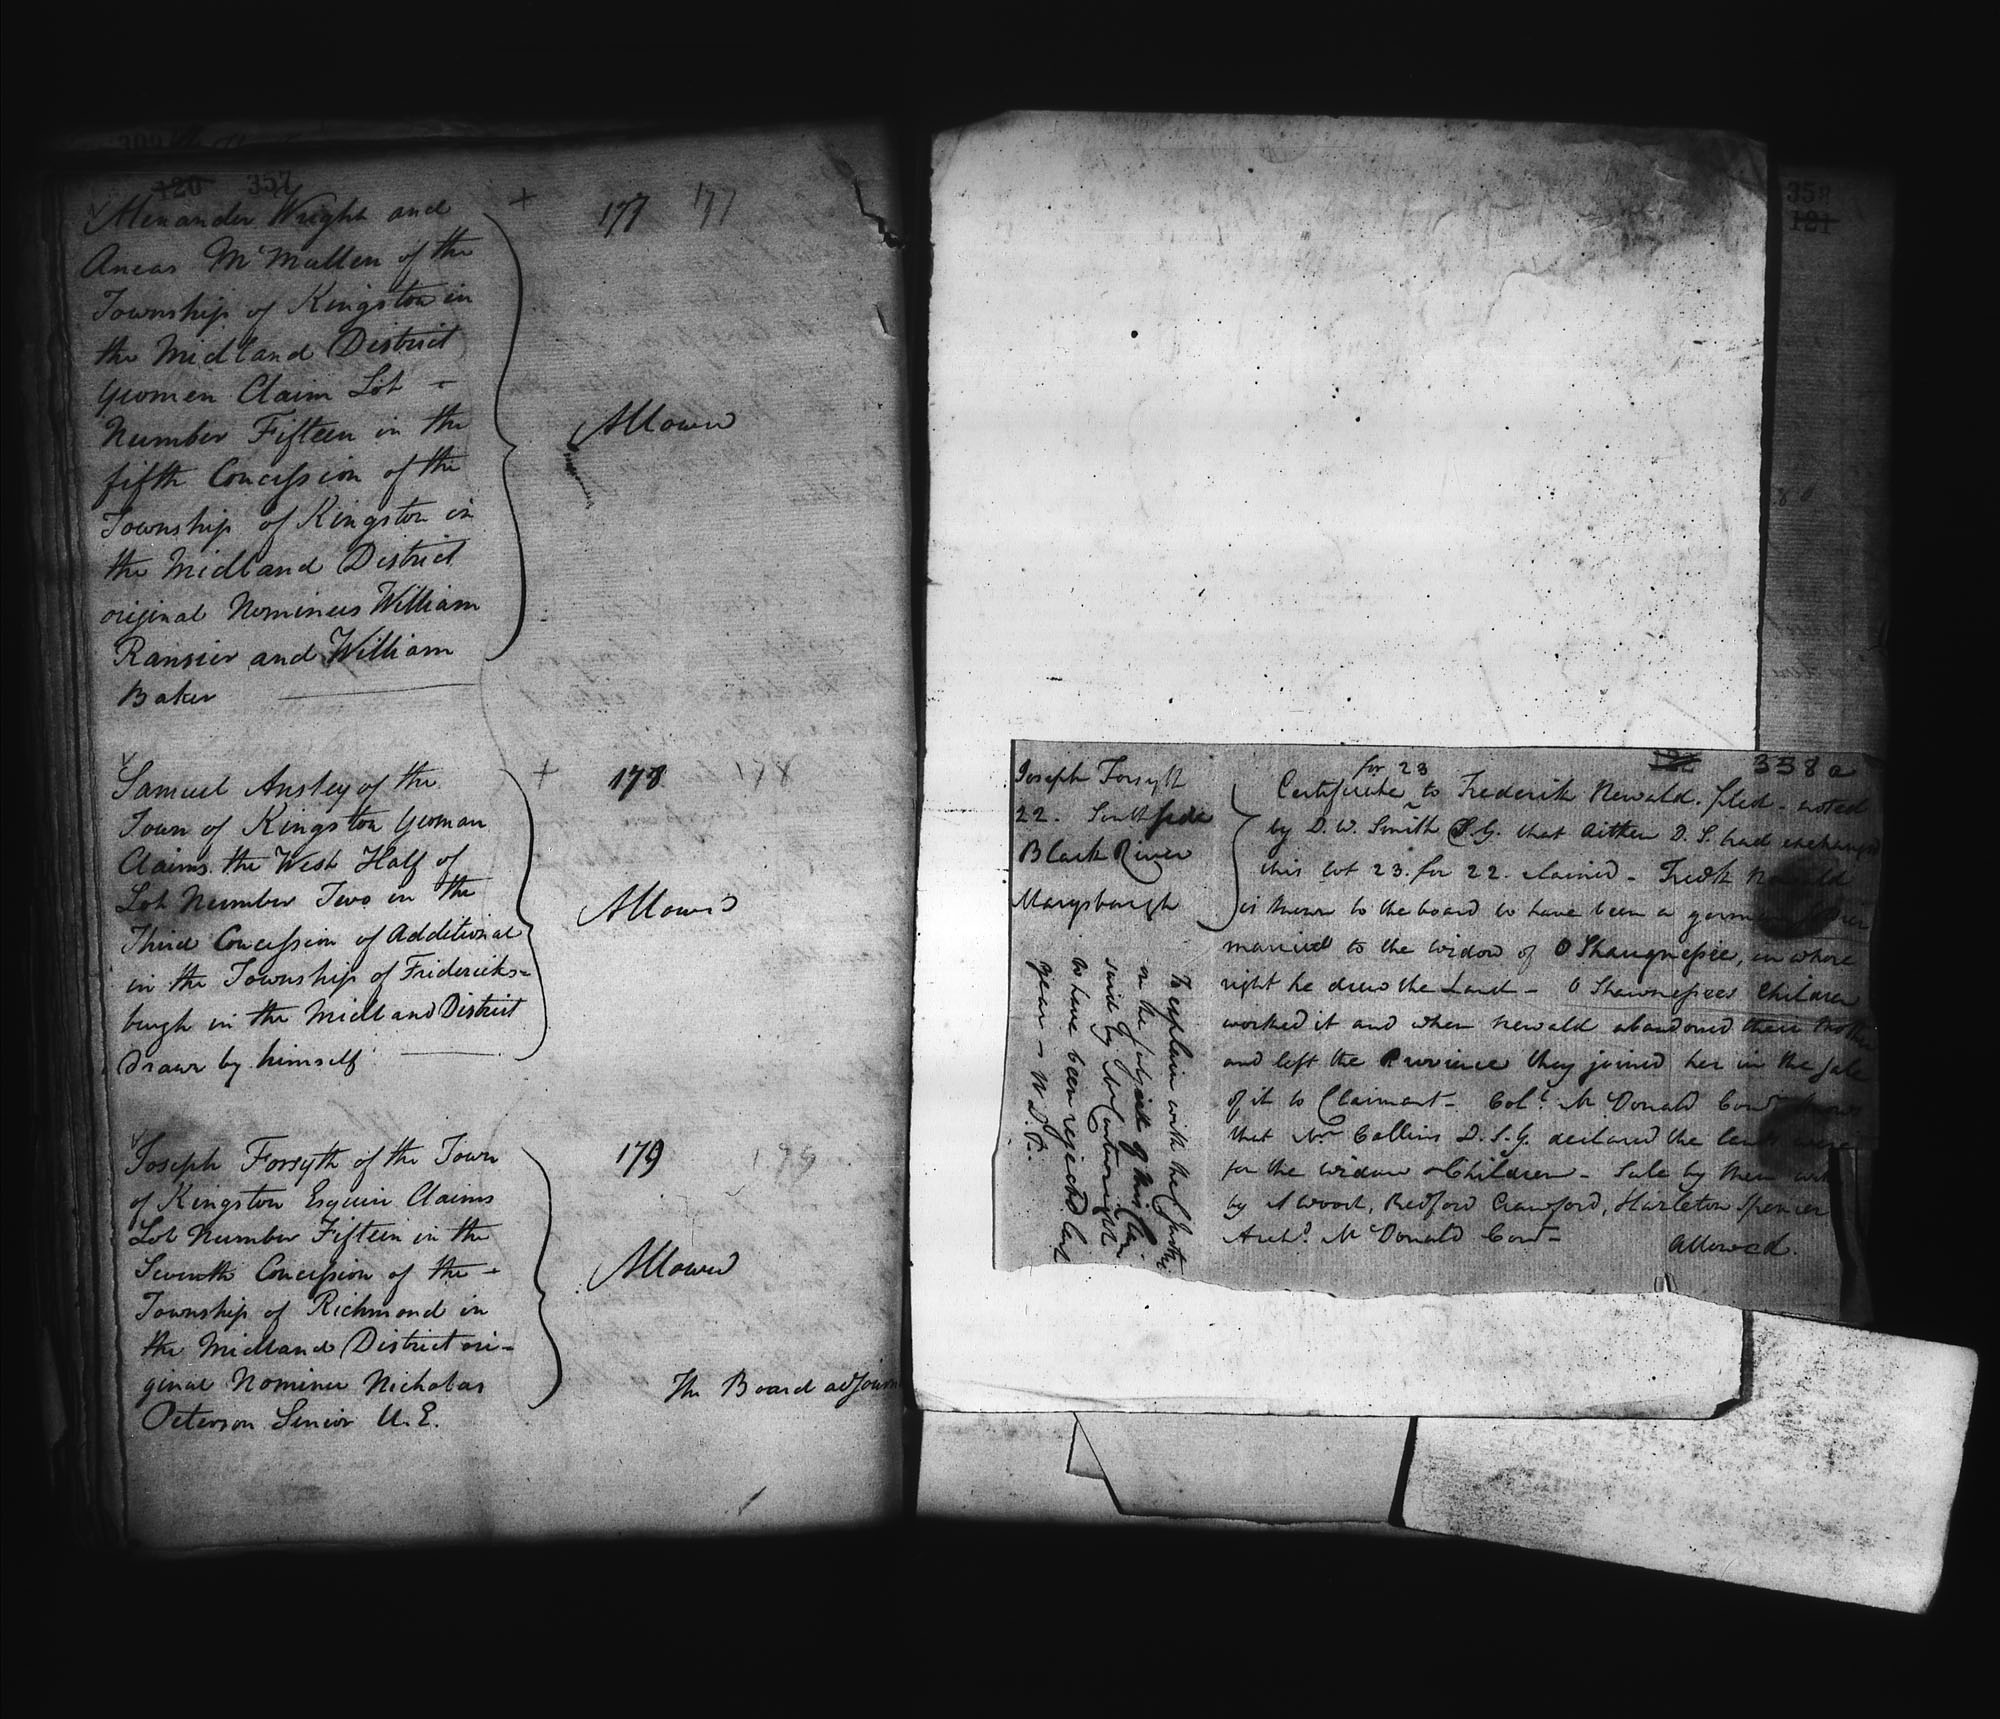 120 357
Alexander Wright and
Aneas McMullen of the
Township of Kingston in
the Midland District
Yeomen Claim Lot -
Number Fifteen in the
fifth Concession of the
Township of Kingston in
the Midland District
original Nominees William
Ransier and William
Baker
+ 177 177
Allowed
Samuel Anstey of the
Town of Kingston Yeoman
Claims the West Half of
Lot Number Two in the
Third Concession of Additional
in the Township of Fredericks-
burgh in the Midland District
Drawn by himself
+ 178 178
Allowed
Joseph Forsyth of the Town
of Kingston Esquire Claims
Lot Number Fifteen in the
Seventh Concession of the -
Township of Richmond in
the Midland District ori-
ginal Nominee Nicholas
Peterson Senior U.E.
179 179
Allowed
The Board adjourn
358
121
122 358a
Joseph Forsyth
22. South side
Black River
Marysburgh
for 23
Certificate to Frederik Newald. filed - noted
by D. W. Smith S.G. that Aitken D.S. had exchanged
this lot 23. for 22. claimed - Fredk Newald
is known to the board to have been a german
married to the widow of O Shaugnessie, in whose
right he drew the Land - O Shawnessees Children
worked it and when Newald abandoned their Mother
and left the Province they joined her in the sale
of it to Claimant - Col. McDonald Comr knows
that Mr Collins D.S.G. declared the lands were
for the widow & Children - Sale by them wit
by A Wood, Bedford Crawford, Hazleton Spencer
Archd McDonald Comr -
Allowed.
To explain with the Chief Justice
on the subject of this Claim
said by Mr Cartwright
to have been rejected last
year - W.D.P.